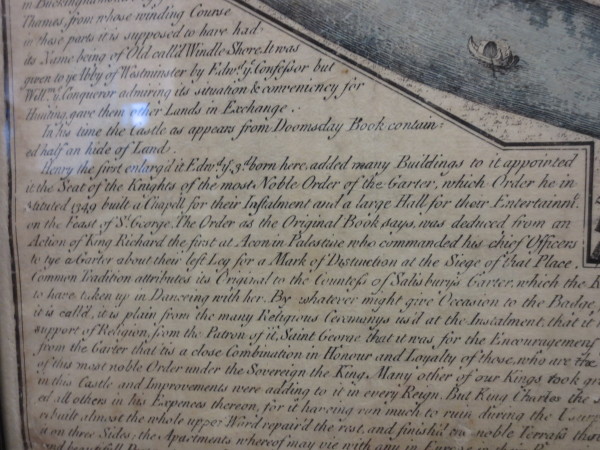 in Buckinghamshire
Thames, from whose winding Course
in those parts it is supposed to have had
its Name being of Old call'd Windle-Shore. It was
given to yᵉ Abby of Westminster by Edwᵈ. yᵉ. Confessor but
Willᵐ. yᵉ. Conqueror admiring its situation & conveniency for
Hunting, gave them other Lands in Exchange..
In his time the Castle as appears from Doomsday Book contain:
ed half an hide of Land.
Henry the first enlarg'd it. Edwᵈ. yᵉ. 3ᵈ. born here, added many Buildings to it appointed
it the Seat of the Knights of the most Noble Order of the Garter, which Order he in
stituted 1349 built a Chapell for their Instalment and a large Hall for their Entertainmᵗ.
on the Feast of Sᵗ. George. The Order as the Original Book says, was deduced from an
Action of King Richard the first at Acon in Palestine who commanded his chief Officers
to tye a Garter about their left Leg for a Mark of Distinction at the Siege of that Place.
Common Tradition attributes its Original to the Countess of Salisbury's Garter, which the K
to have taken up in Dancing with her. By whatever might give Occasion to the Badge,
it is call'd, it is plain from the many Religious Ceremonys us'd at the Instalment, that it
support of Religion, from the Patron of it, Saint George that it was, for the Encouragement
from the Garter that tis a close Combination in Honour and Loyalty of those, who are
of this most noble Order under the Sovereign the King. Many other of our Kings took
in this Castle and Improvements were adding to it in every Reign. But King Charles the
ed all others in his Expences thereon, for it having run much to ruin during the
rebuilt almost the whole upper Ward repair'd the rest, and finish'd the noble Terrass
it on three Sides; the Apartments whereof may vie with any in Europe